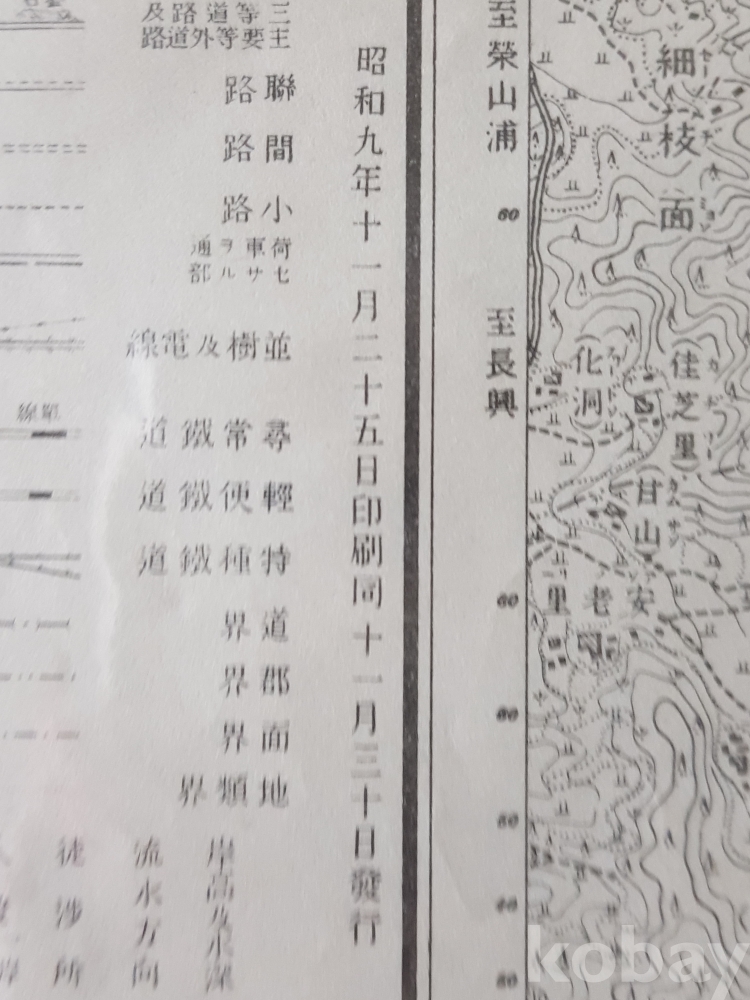 三等道路及
主要等外道路
聯路
間路
小路
荷車ヲ通
セサル部
並樹及電線
單線
尋常鐵道
輕便鐵道
特種鐵道
道界
郡界
面界
地類界
岸高及水深
流水方向
徒涉所
昭和九年十一月二十五日印刷同十一月三十日發行
至榮山浦
至長興
60
60
60
80
40
80
細枝面
佳芝里
化洞
甘山
カムサン
安老里
kobay